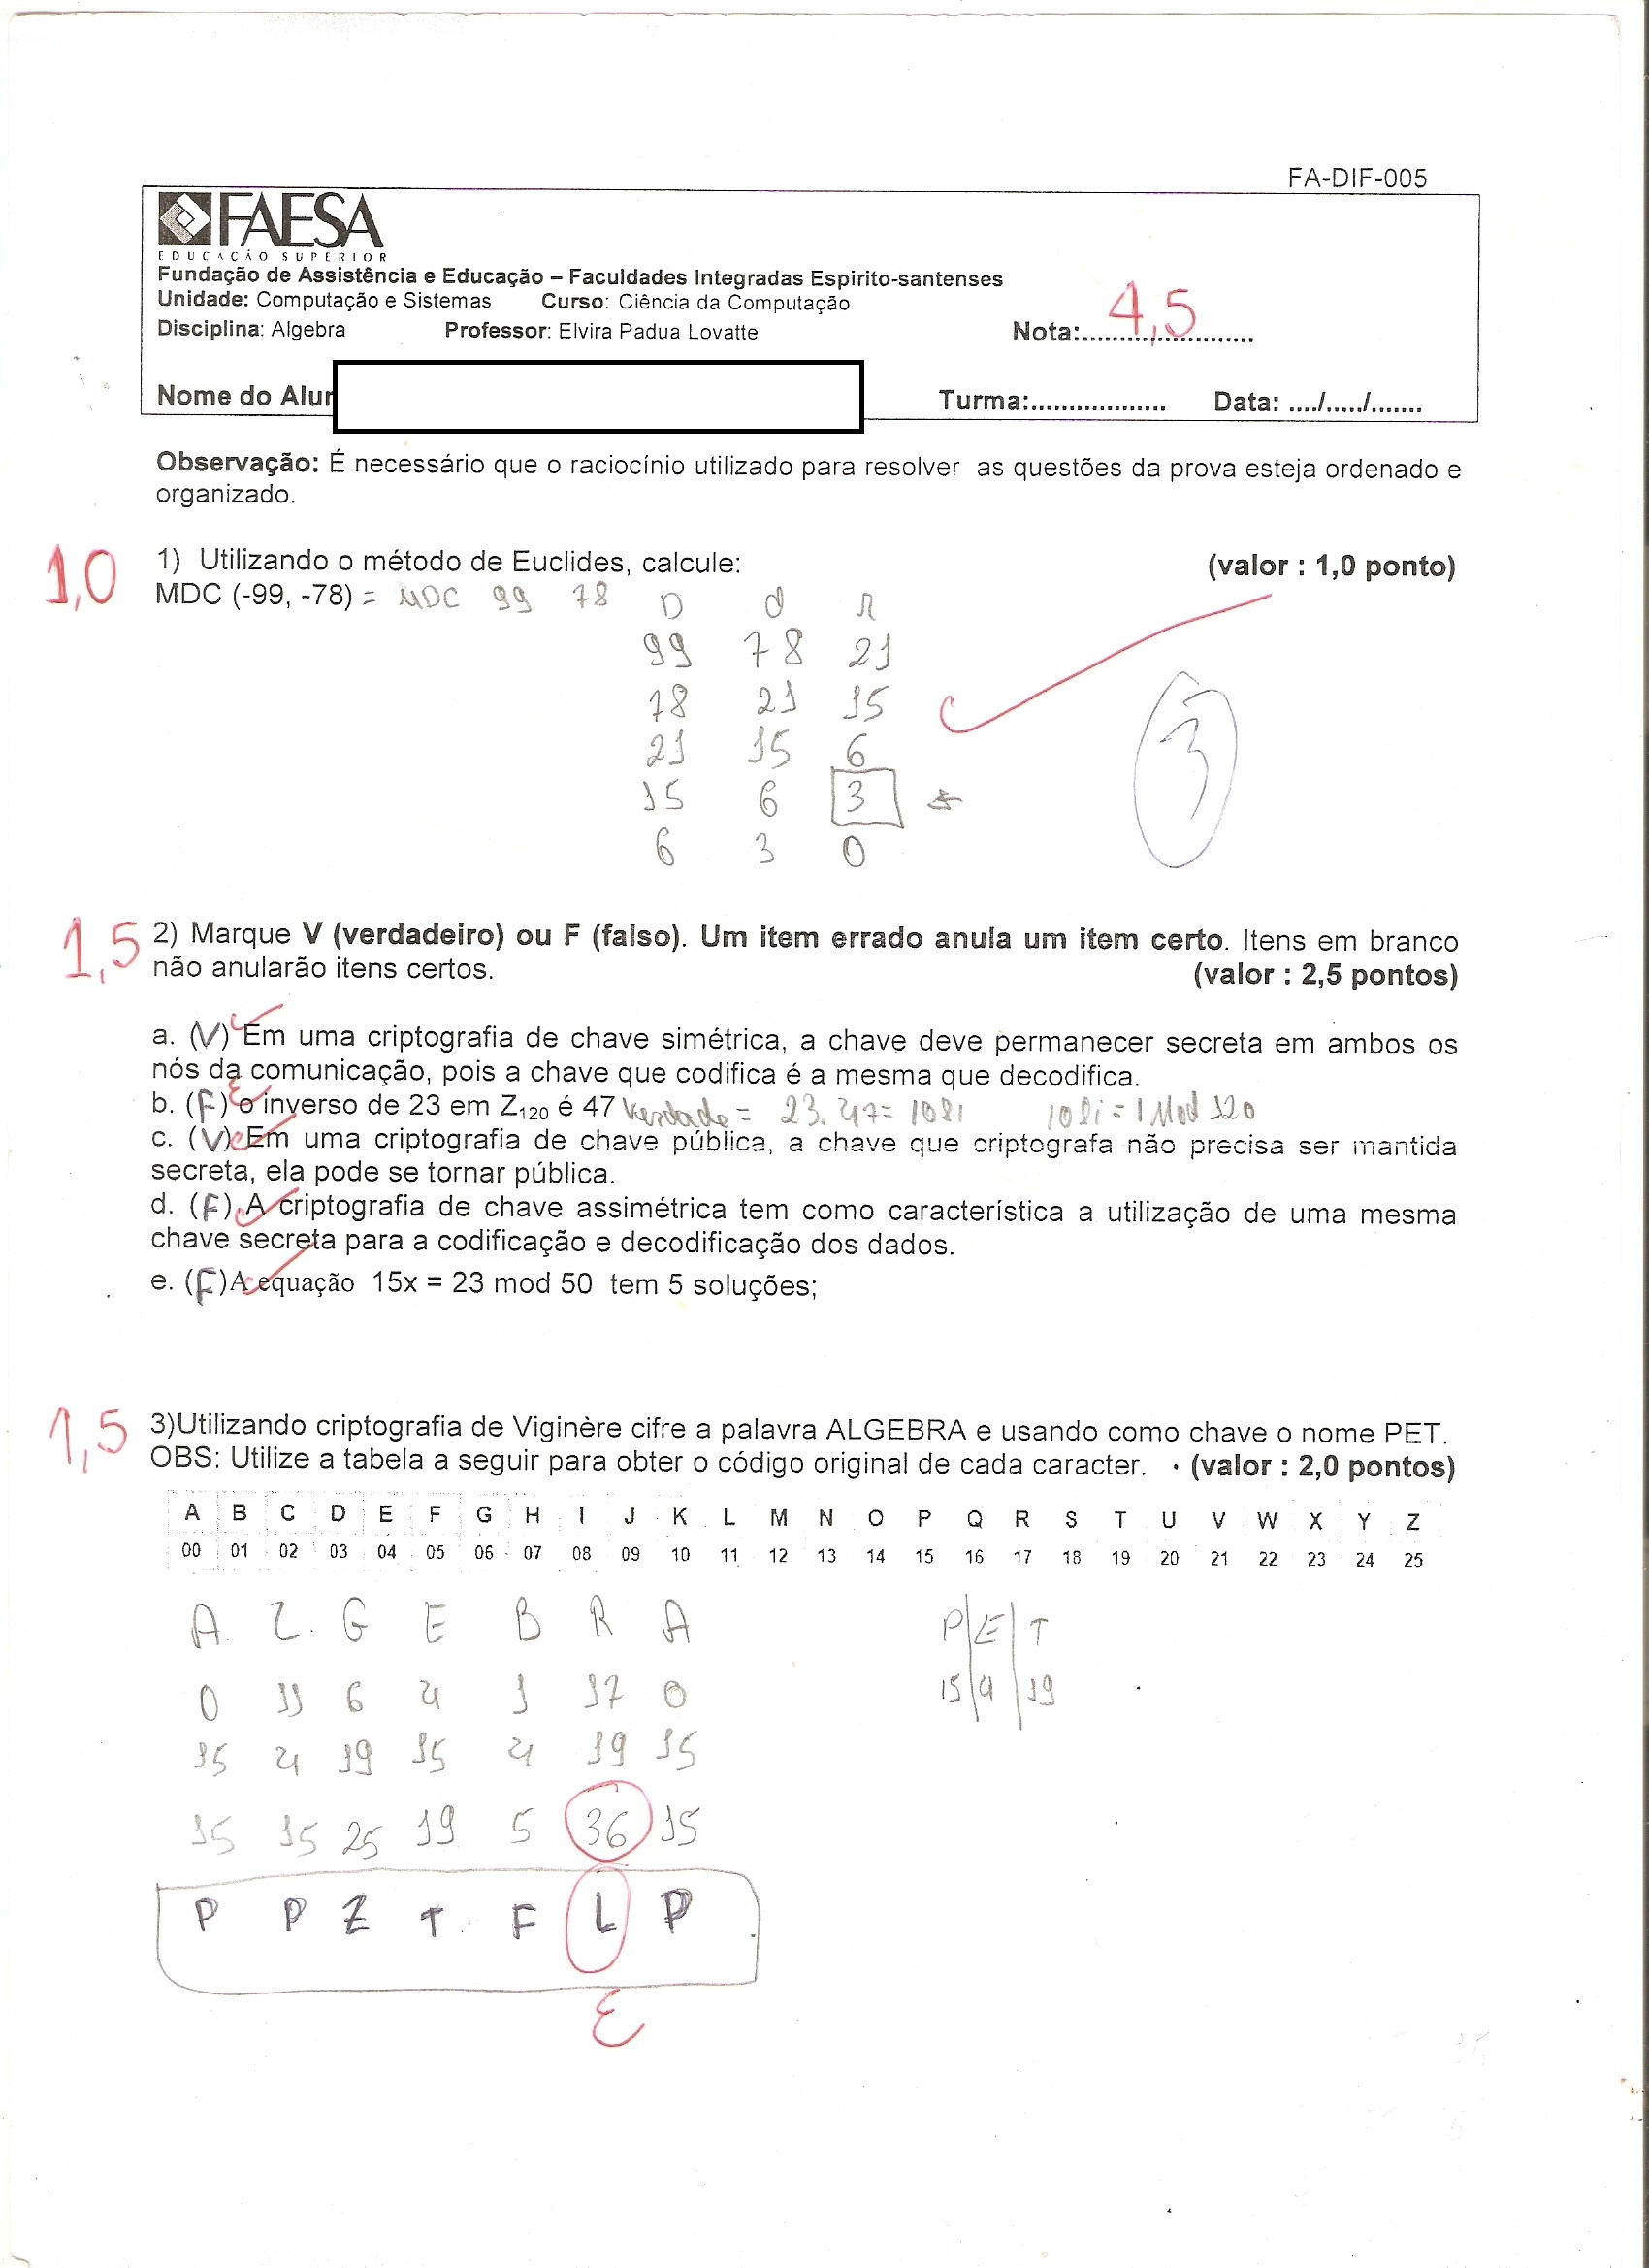 FA-DIF-005
FAESA
EDUCAÇÃO SUPERIOR
Fundação de Assistência e Educação – Faculdades Integradas Espirito-santenses
Unidade: Computação e Sistemas Curso: Ciência da Computação
Disciplina: Algebra Professor: Elvira Padua Lovatte Nota:....................... 4,5
Nome do Alu Turma:.................. Data: ..../...../.......
Observação: É necessário que o raciocínio utilizado para resolver as questões da prova esteja ordenado e
organizado.
1,0 1) Utilizando o método de Euclides, calcule: (valor : 1,0 ponto)
MDC (-99, -78) = MDC 99 78 D d R
99 78 21
78 21 15
21 15 6
15 6 3 *
6 3 0
3
1,5 2) Marque V (verdadeiro) ou F (falso). Um item errado anula um item certo. Itens em branco
não anularão itens certos. (valor : 2,5 pontos)
a. (V) Em uma criptografia de chave simétrica, a chave deve permanecer secreta em ambos os
nós da comunicação, pois a chave que codifica é a mesma que decodifica.
b. (F) o inverso de 23 em Z120 é 47 Verdade = 23.47=1081 1081 = 1 Mod 120
c. (V) Em uma criptografia de chave pública, a chave que criptografa não precisa ser mantida
secreta, ela pode se tornar pública.
d. (F) A criptografia de chave assimétrica tem como característica a utilização de uma mesma
chave secreta para a codificação e decodificação dos dados.
e. (F) A equação 15x = 23 mod 50 tem 5 soluções;
1,5 3)Utilizando criptografia de Viginère cifre a palavra ALGEBRA e usando como chave o nome PET.
OBS: Utilize a tabela a seguir para obter o código original de cada caracter. (valor : 2,0 pontos)
A B C D E F G H I J K L M N O P Q R S T U V W X Y Z
00 01 02 03 04 05 06 07 08 09 10 11 12 13 14 15 16 17 18 19 20 21 22 23 24 25
A L G E B R A P E T
0 11 6 4 1 17 0 15 4 19
15 4 19 15 4 19 15
15 15 25 19 5 36 15
P P Z T F L P
E